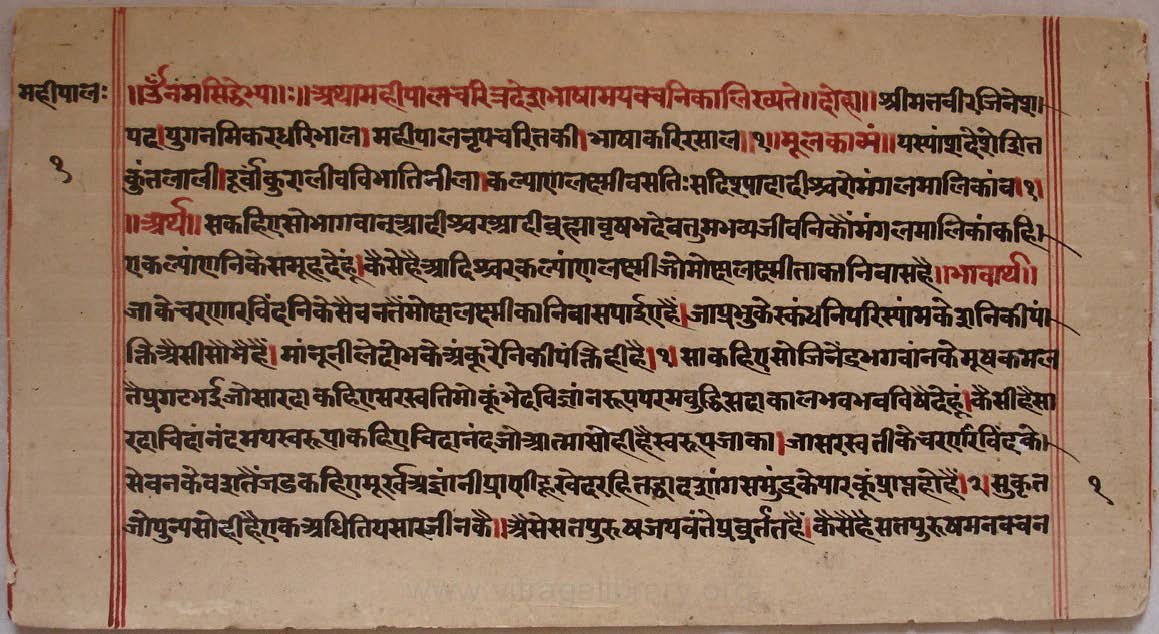 महीपालः
१
॥ॐनमसिद्धेभ्यः॥ः॥अथामहीपालचरित्रदेशभाषामयवचनिकालिख्यते॥दोहा॥श्रीमतवीरजिनेश।
पद।युगनमिकरधरिभाल।महीपालनृपचरितकी।भाषाकरिरसाल।१॥मूलकाव्यं॥यस्यांशदेशेशित
कुंतलाली।दूर्वांकुरालीवविभातिनीला।कल्याणलक्ष्मीवसतिःसदिश्यादादीश्वरोमंगलमालिकांव।१।
॥अर्थ॥सकहिएसोभागवान्आदीश्वरआदीब्रह्मावृषभदेवतुमभव्यजीवनिकौंमंगलमालिकांकहि।
एकल्यांणनिकेसमूहदेहूं।कैसेहैआदिश्वरकल्यांणलक्ष्मीजोमोक्षलक्ष्मीताकानिवासहै॥भावार्थ॥
जाकेचरणारविंदनिकेसेवनतैंमोक्षलक्ष्मीकानिवासपाईएहैं।जाप्रभुकेस्कंधनिपरिस्यांमकेशनिकीपं।
क्तिअैसीसोभैहैं।मांनूनीलेदोभकेअंकूरेनिकीपंक्तिहीहै।१।साकहिएसोजिनेंद्रभगवांनकेमूषकमल
तैप्रगटभईजोसारदाकहिएसरस्वतिमोकूंभेदविज्ञांनरूपपरमबुद्धिसदाकालभवभवविषैदेहूं।कैसीहैसा
रदाचिदांनंदमयस्वरूपाकहिएचिदानंदजोआत्मासोहीहैस्वरूपजाका।जासरस्वतीकेचरणारविंदके।
सेवनकेवशतैंजडकहिएमूर्खअज्ञांनीप्राणीहूखेदरहितद्वादशांगसमुंद्रकेपारकूंप्राप्तहोहैं।२।सुकृत
जोपुन्यसोहीहैएकअधितियसारजीनकै॥अैसेसतपुरूषजयवंतेप्रवुर्ततहैं।कैसेहैसतपुरूषमनवचन
१
www.vitragelibrary.org